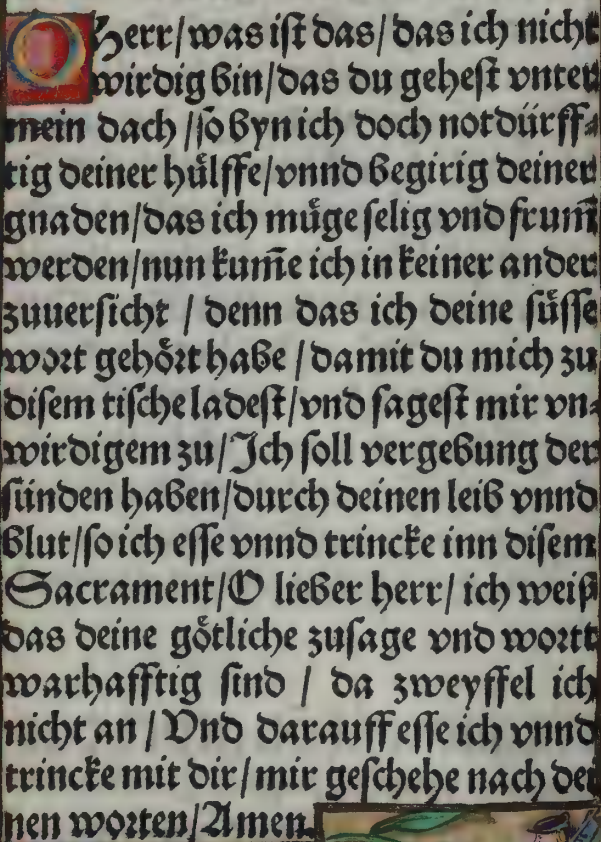 O Herr/was ist das/das ich nicht
wirdig bin/das du gehest vnter
mein dach /so byn ich doch notdürff⸗
tig deiner hülffe/vnnd begirig deiner
gnaden/das ich müge selig vnd frum̄
werden/nun kum̄e ich in keiner ander
zuuersicht / denn das ich deine süsse
wort gehört habe / damit du mich zu
disem tische ladest/vnd sagest mir vn⸗
wirdigem zu/Ich soll vergebung der
sünden haben/durch deinen leib vnnd
blut/so ich esse vnnd trincke inn disem
Sacrament/O lieber herr/ ich weiß
das deine götliche zusage vnd wortt
warhafftig sind / da zweyffel ich
nicht an / Vnd darauff esse ich vnnd
trincke mit dir/mir geschehe nach dei
nen worten/Amen.